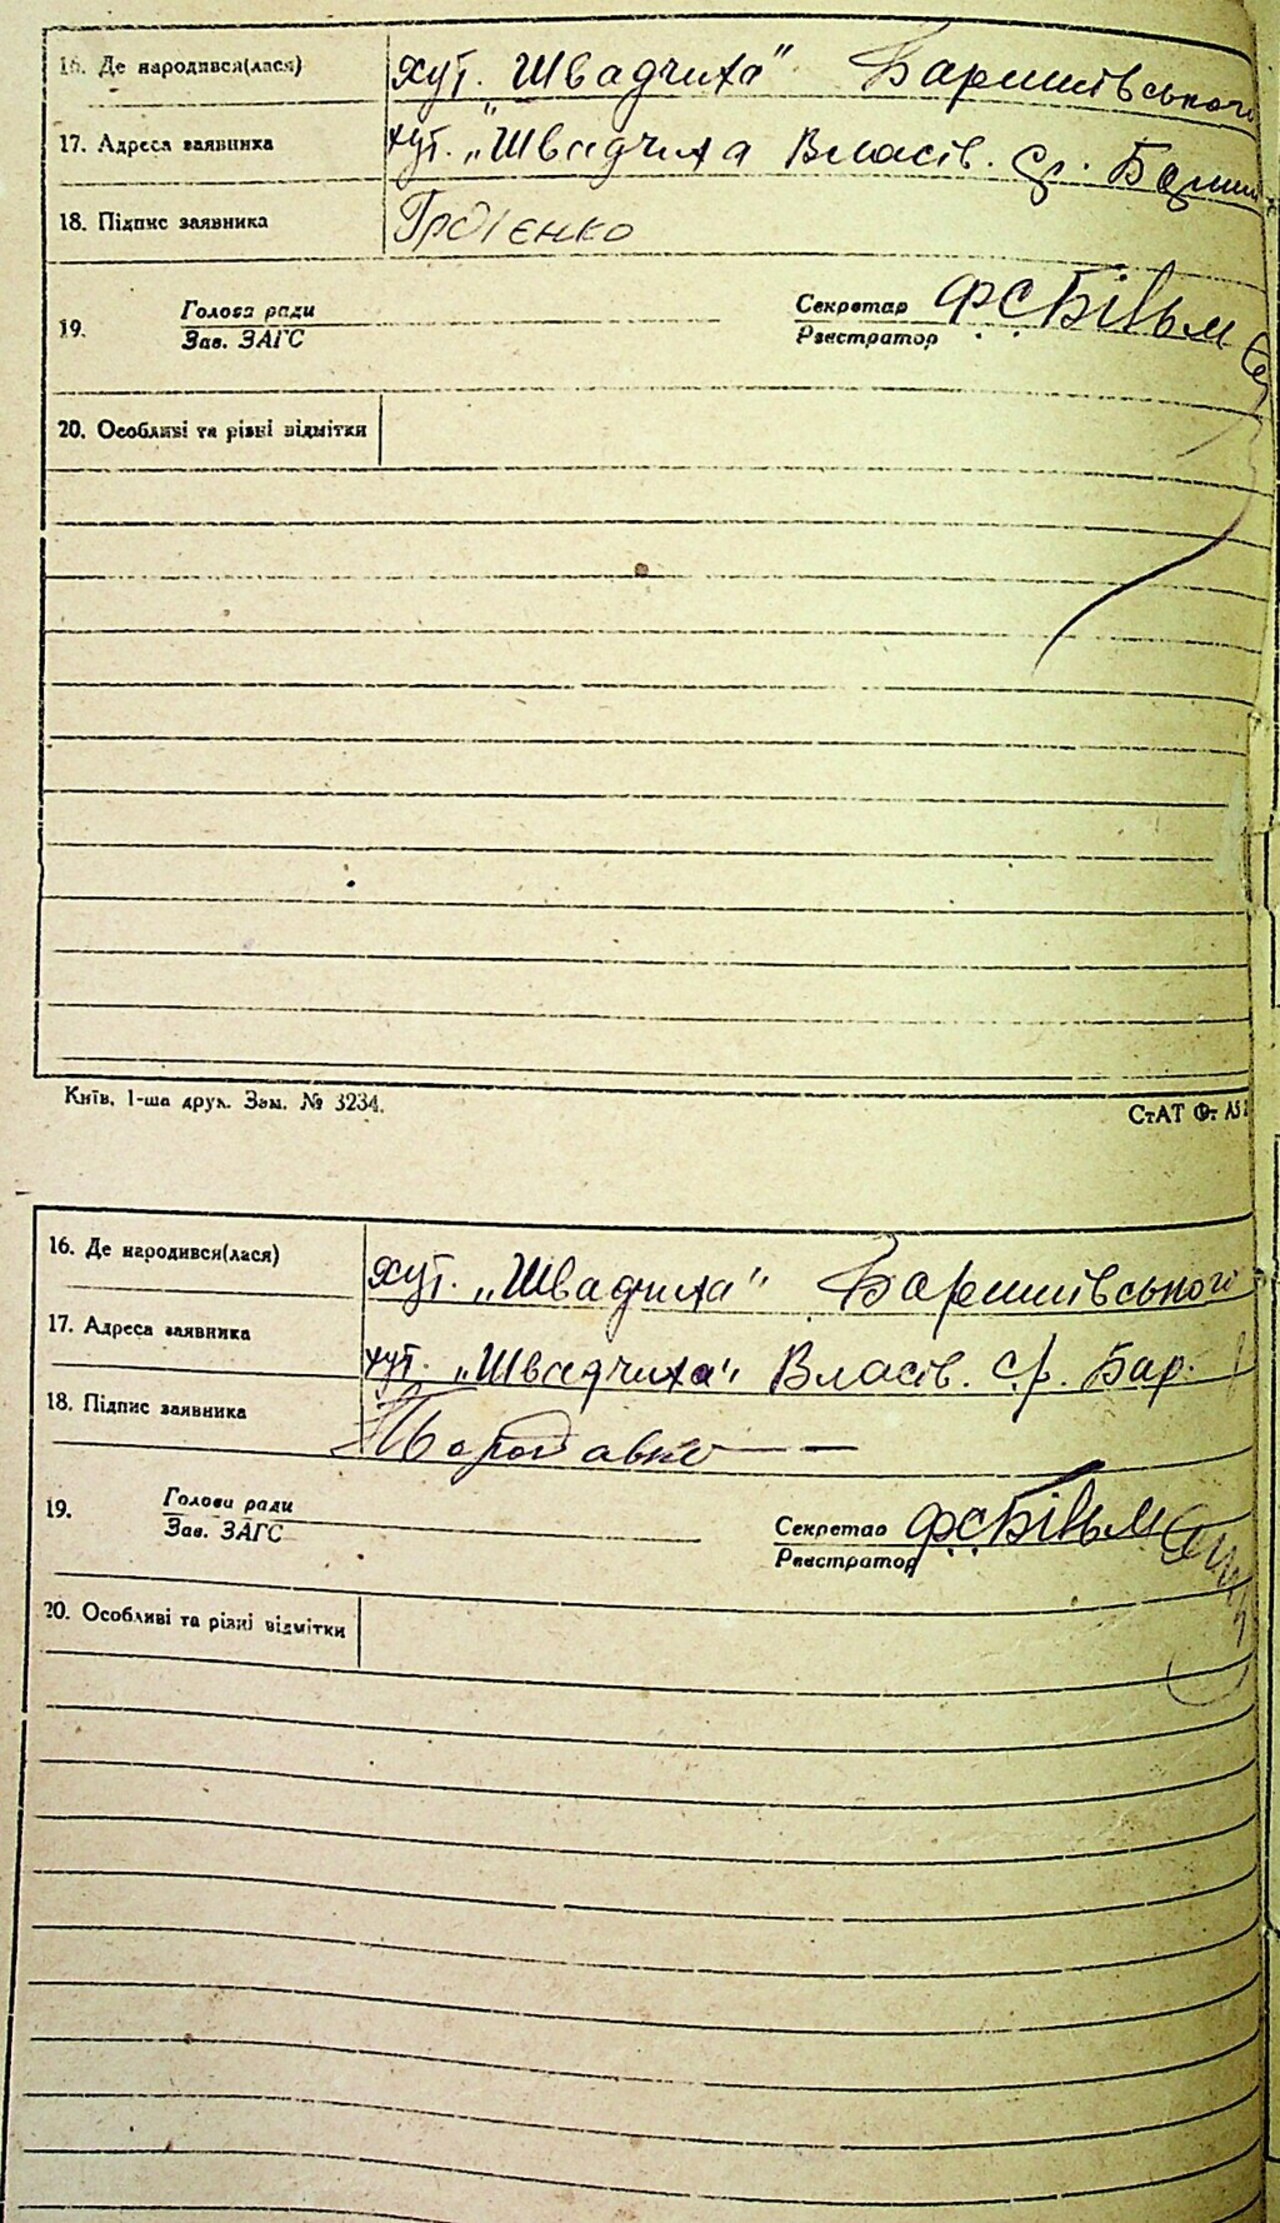 16. Де народився(лася) хут. "Швадчиха" Баришівського
17. Адреса заявника хут. „Швадчиха Власів. с/р. Бариш
18. Підпис заявника
19. Голова ради Секретар
Зав. ЗАГС Реєстратор
20. Особливі та різні відмітки
Київ, 1-ша друк. Зам. № 3234. СтАТ
16. Де народився(лася) хут. „Швадчиха" Баришівського
17. Адреса заявника хут. „Швадчиха" Власів. с/р. Бар.
18. Підпис заявника
19. Голова ради Секретар
Зав. ЗАГС Реєстратор
20. Особливі та різні відмітки